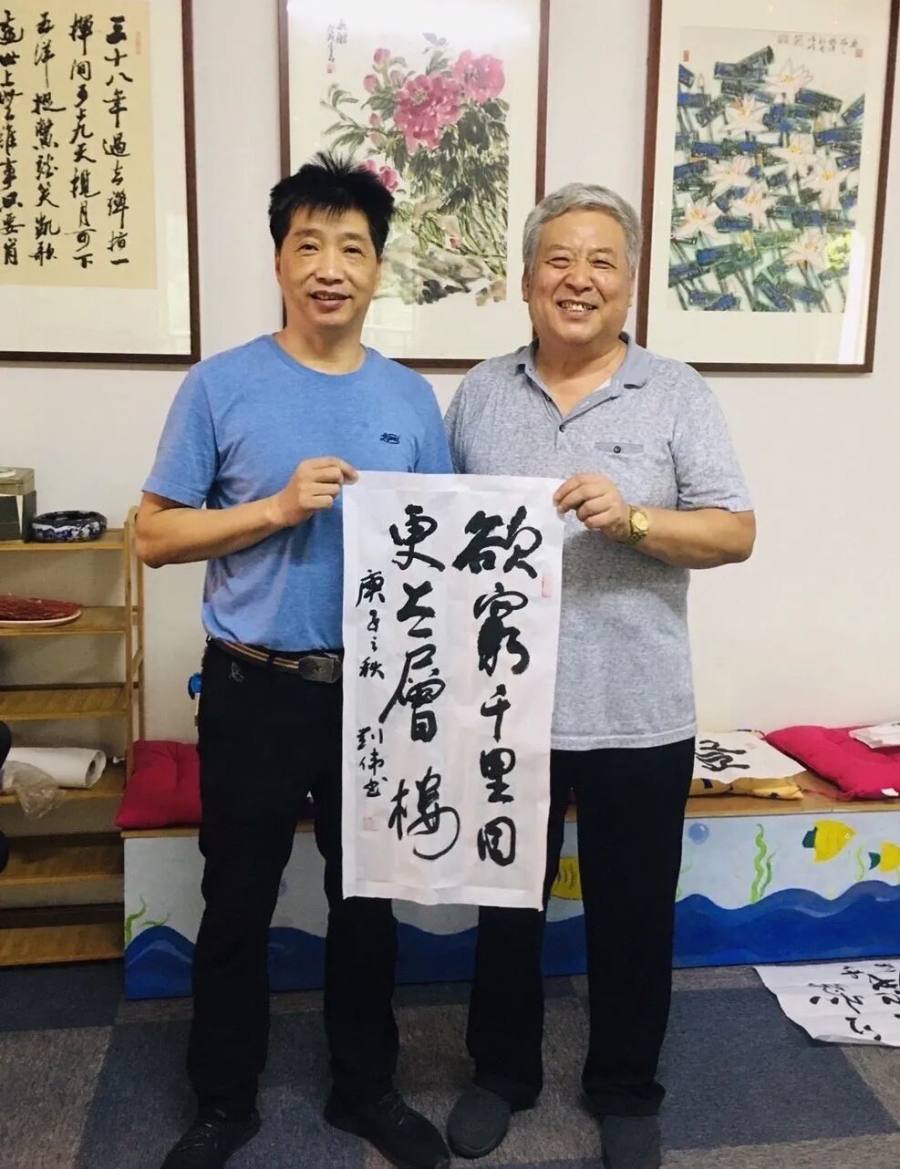 三十八年過去彈指一
揮間可上九天攬月可下
五洋捉鱉談笑凱歌
還世上無難事只要肯
欲窮千里目
更上一層樓
庚子之秋 刘伟书